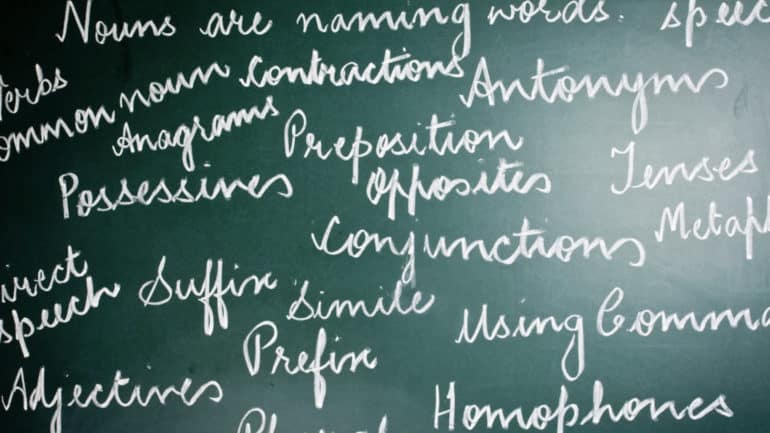 Nouns are naming words. speec
Verbs
ommon noun contractions Antonyms
Anagrams Preposition
Possessives Opposites Tenses
Conjunctions Metaph
irect
speech Suffix Simile Using Comma
Prefix
Adjectives Homophones